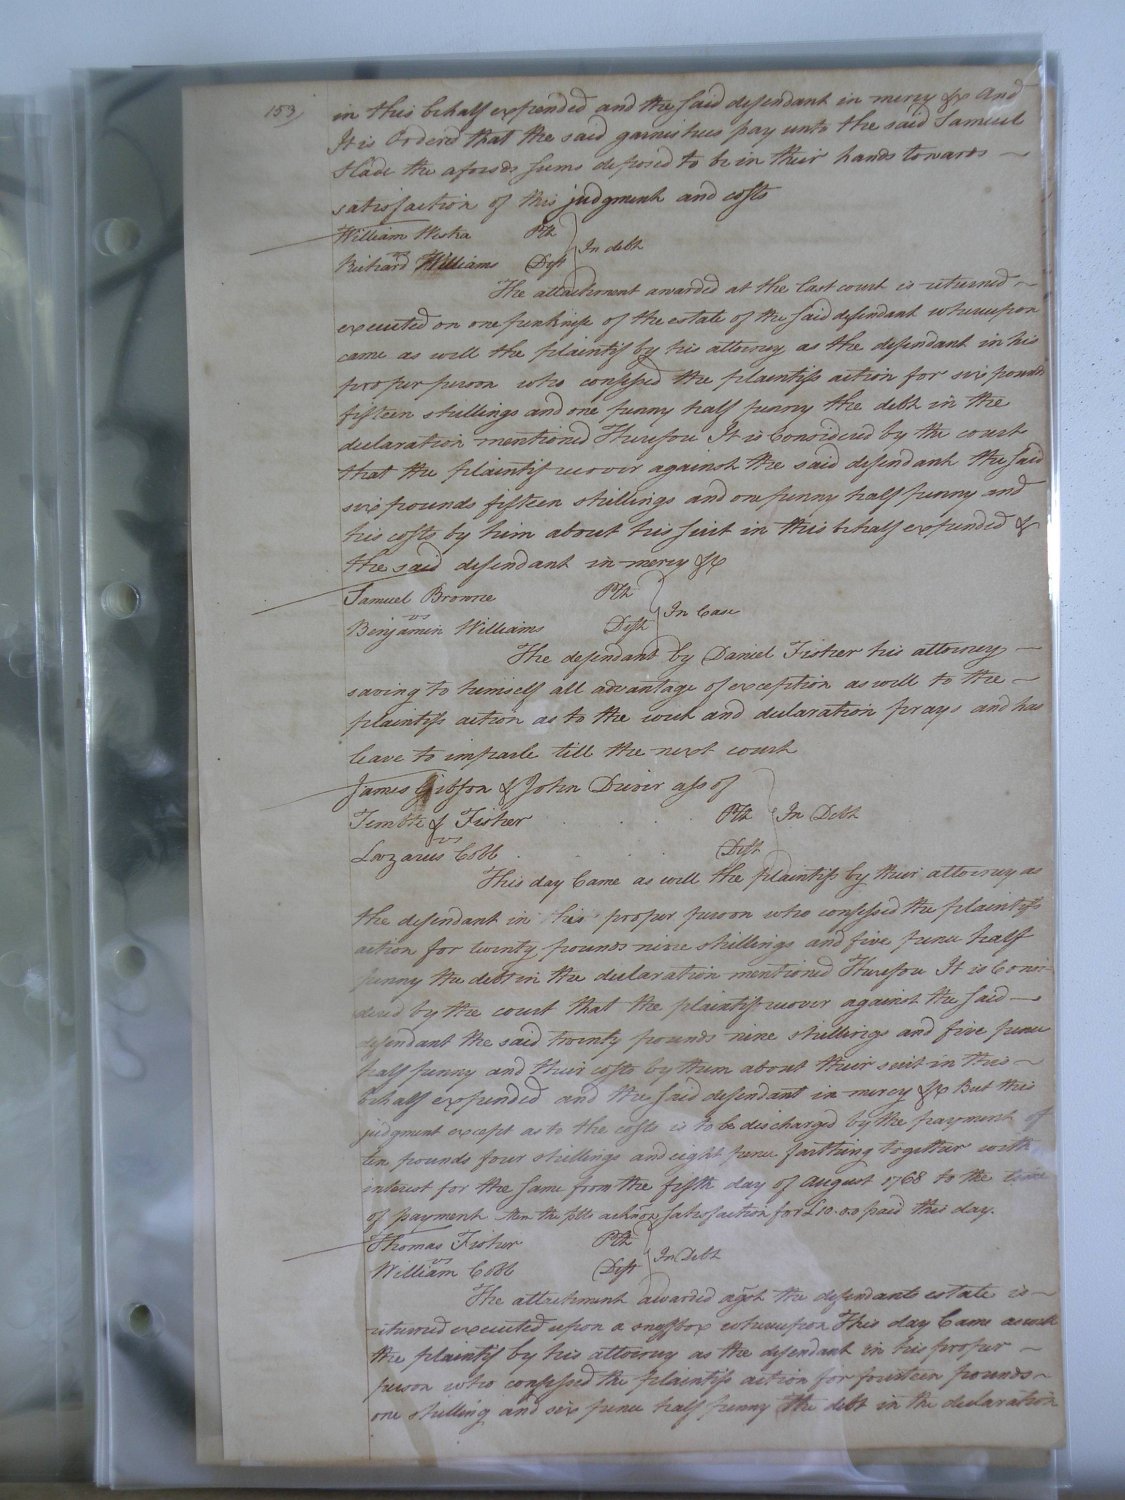 153
in this behalf expended and the said defendant in mercy &c And
It is Ordered that the said garnishees pay unto the said Samuel
Slade the aforesds sums deposed to be in their hands towards
satisfaction of this judgment and costs
William Westra Plt
vs In debt
Richard Williams Deft
The attachment awarded at the last court is returned
executed on one penknife of the estate of the said defendant whereupon
came as well the plaintif by his attorney as the defendant in his
proper person who confessed the plaintifs action for six pounds
fifteen shillings and one penny half penny the debt in the
declaration mentioned Therefore It is Considered by the court
that the plaintif recover against the said defendant the said
six pounds fifteen shillings and one penny half penny and
his costs by him about his suit in this behalf expended &
the said defendant in mercy &c
Samuel Browne Plt
vs In Case
Benjamin Williams Deft
The defendant by Daniel Fisher his attorney
saving to himself all advantage of exception as well to the
plaintifs action as to the writ and declaration prays and has
leave to imparle till the next court
James Gibson & John Driver ass of
Temple & Fisher Plt In Debt
vs
Lazarus Cobb Deft
This day Came as well the plaintifs by their attorney as
the defendant in his proper person who confessed the plaintifs
action for twenty pounds nine shillings and five pence half
penny the debt in the declaration mentioned Therefore It is Consi-
dered by the court that the plaintifs recover against the said
defendant the said twenty pounds nine shillings and five pence
half penny and their costs by them about their suit in this
behalf expended and the said defendant in mercy &c But this
judgment except as to the costs is to be discharged by the payment of
ten pounds four shillings and eight pence farthing together with
interest for the same from the fifth day of August 1768 to the time
of payment then the plts acknow satisfaction for £10.0.0 paid this day.
Thomas Fisher Plt
vs In Debt
William Cobb Deft
The attachment awarded agst the defendants estate is
returned executed upon a snuffbox whereupon This day Came as well
the plaintif by his attorney as the defendant in his proper
person who confessed the plaintifs action for fourteen pounds
one shilling and six pence half penny the debt in the declaration